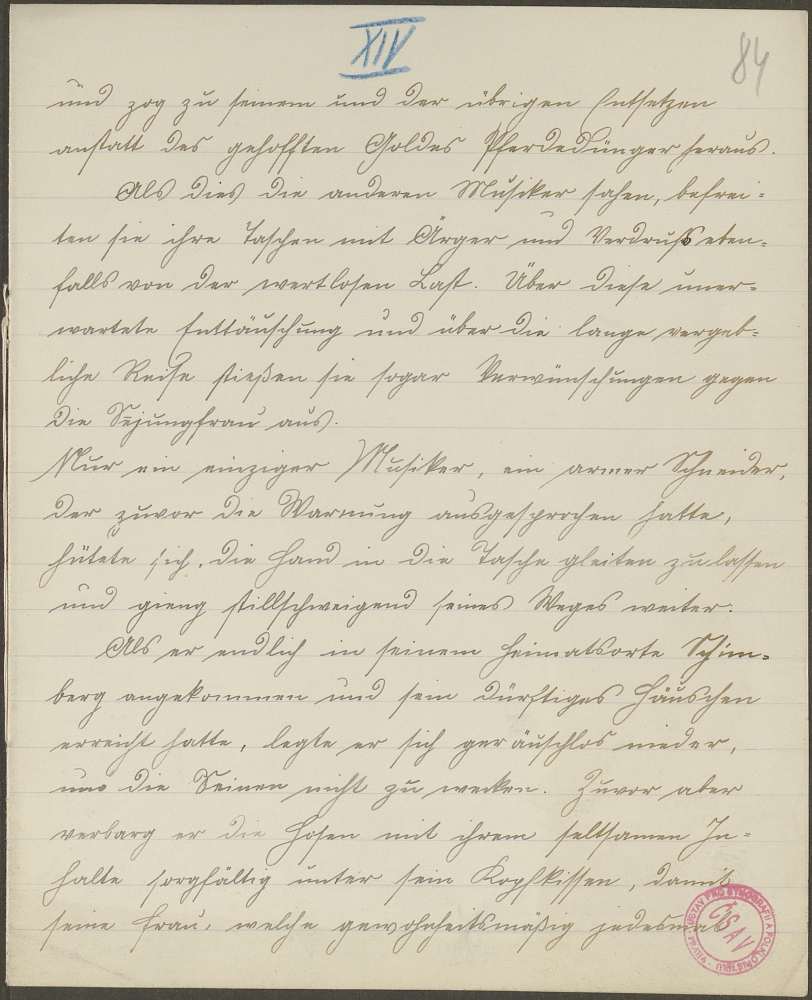 XIV
84
und zog zu seinem und der übrigen Entsetzen
anstatt des gehofften Goldes Pferdedünger heraus.
Als dies die anderen Musiker sahen, befrei-
ten sie ihre Taschen mit Ärger und Verdruß eben-
falls von der wertlosen Last. Über diese uner-
wartete Enttäuschung und über die lange vergeb-
liche Reise stießen sie sogar Verwünschungen gegen
die Seejungfrau aus.
Nur ein einziger Musiker, ein armer Schneider,
der zuvor die Warnung ausgesprochen hatte,
hütete sich, die Hand in die Tasche gleiten zu lassen
und gieng stillschweigend seines Weges weiter.
Als er endlich in seinem Heimatsorte Schim-
berg angekommen und sein dürftiges Häuschen
erreicht hatte, legte er sich geräuschlos nieder,
um die Seinen nicht zu wecken. Zuvor aber
verbarg er die Hosen mit ihrem seltsamen In-
halte sorgfältig unter sein Kopfkissen, damit
seine Frau, welche gewohnheitsmäßig jedesmal
ÚSTAV PRO ETNOGRAFII A FOLKLORISTIKU
ČSAV